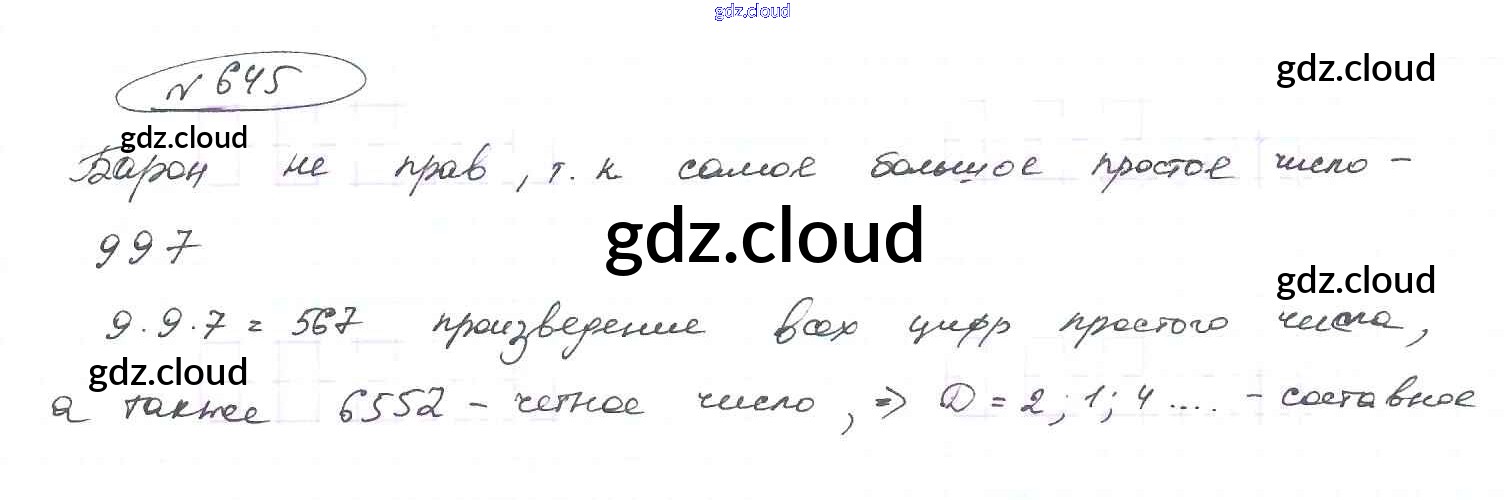 gdz.cloud
№ 645
gdz.cloud
gdz.cloud
Барон не прав, т.к. самое большое простое число -
997
gdz.cloud
gdz.cloud
9.9.7 = 567 произведение всех цифр простого числа,
gdz.cloud
а также 6552 - четное число, => D = 2; 1; 4 .... - составное